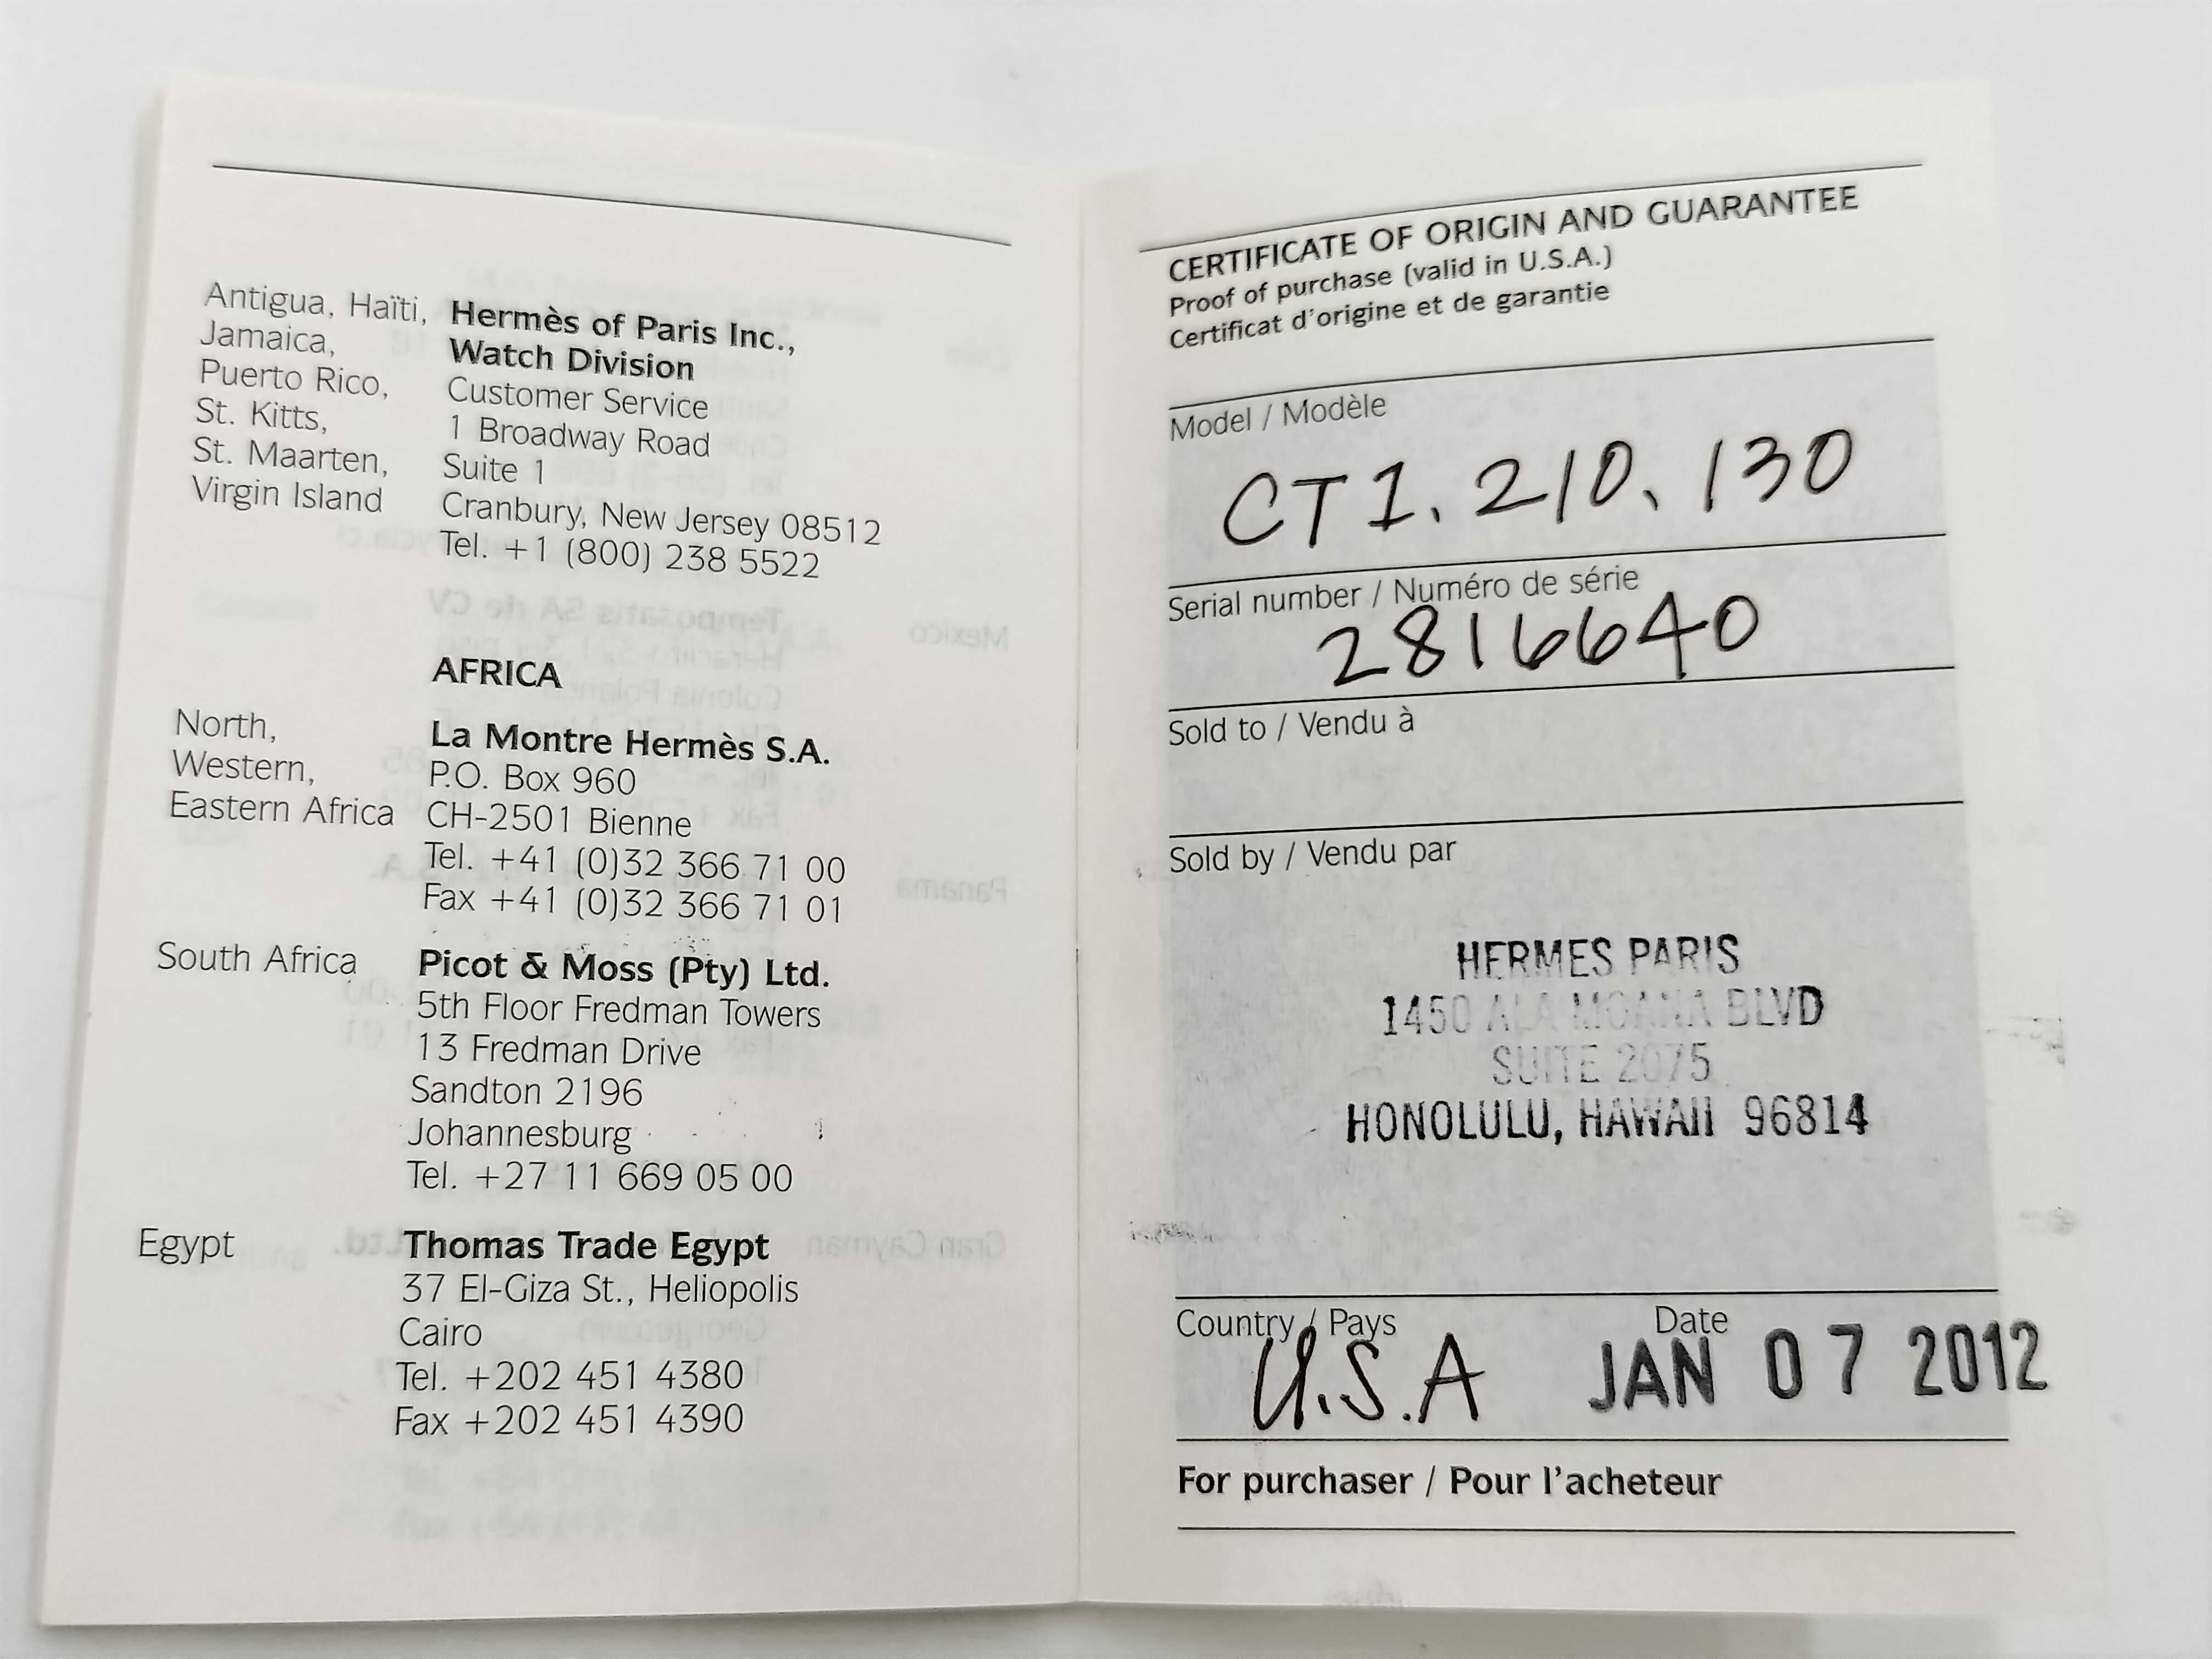 Antigua, Haïti, Hermès of Paris Inc.,
Jamaica, Watch Division
Puerto Rico, Customer Service
St. Kitts, 1 Broadway Road
St. Maarten, Suite 1
Virgin Island Cranbury, New Jersey 08512
Tel. +1 (800) 238 5522
AFRICA
North, La Montre Hermès S.A.
Western, P.O. Box 960
Eastern Africa CH-2501 Bienne
Tel. +41 (0)32 366 71 00
Fax +41 (0)32 366 71 01
South Africa Picot & Moss (Pty) Ltd.
5th Floor Fredman Towers
13 Fredman Drive
Sandton 2196
Johannesburg
Tel. +27 11 669 05 00
Egypt Thomas Trade Egypt
37 El-Giza St., Heliopolis
Cairo
Tel. +202 451 4380
Fax +202 451 4390
CERTIFICATE OF ORIGIN AND GUARANTEE
Proof of purchase (valid in U.S.A.)
Certificat d'origine et de garantie
Model / Modèle
CT1.210.130
Serial number / Numéro de série
2816640
Sold to / Vendu à
Sold by / Vendu par
HERMES PARIS
1450 ALA MOANA BLVD
SUITE 2075
HONOLULU, HAWAII 96814
Country / Pays Date
U.S.A JAN 07 2012
For purchaser / Pour l'acheteur